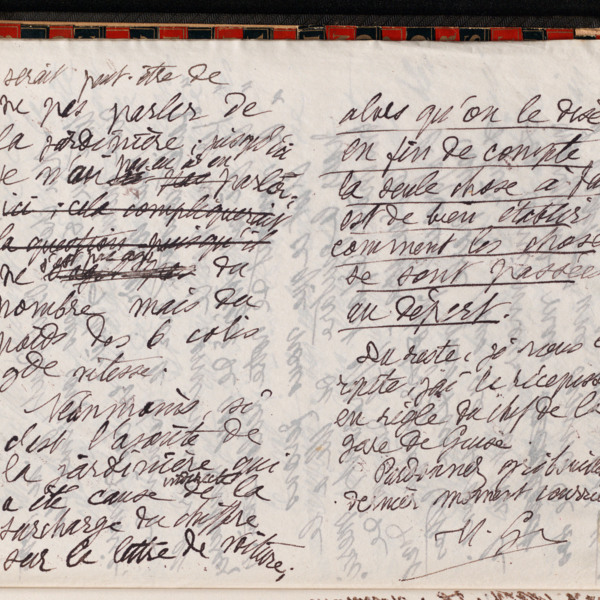 serait peut-être de
ne pas parler de
la jardinière ; jusqu'ici
je n'ai pas eu à en parler
ici ; cela compliquerait
la question puisqu'il
ne s'est pas agi du
nombre mais du
poids des 6 colis
gde vitesse.
Néanmoins, si
c'est l'ajoute de
la jardinière qui
a été cause de la
surcharge du chiffre
sur la lettre de voiture,
alors qu'on le dise
en fin de compte
la seule chose à
est de bien établir
comment les choses
se sont passées
au départ.
Du reste, je vous
répète, j'ai le récépissé
en règle du chef de la
gare de Guise
Pardonnez gribouillage
dernier moment courrier